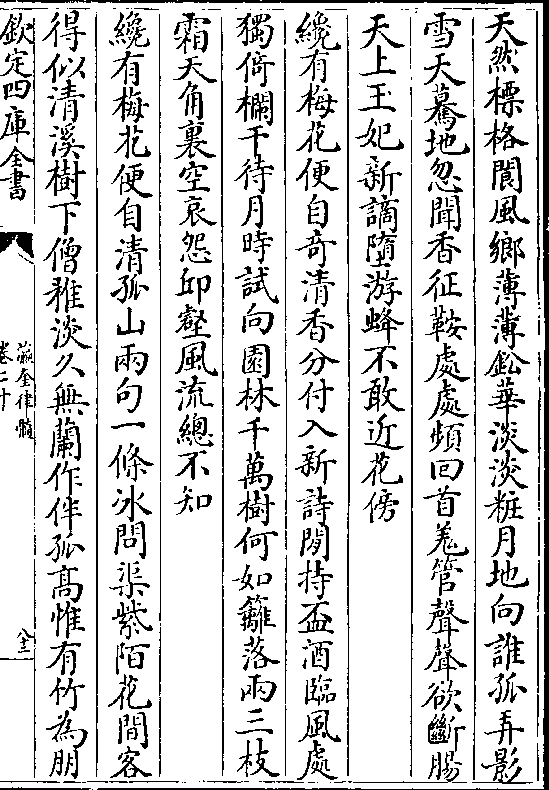 天然標格閬風鄉薄薄鉛華淡淡粧月地向誰孤弄影
雪天驀地忽聞香征鞍處處頻回首羗管聲聲欲斷腸
天上王妃新謫墮游蜂不敢近花傍
纔有梅花便自奇清香分付入新詩閒持盃酒臨風處
獨倚欄干待月時試向園林千萬樹何如籬落兩三枝
霜天角裏空哀怨邱壑風流總不知
纔有梅花便自清孤山兩句一條冰問渠紫陌花間客
得似清溪樹下僧雅淡久無蘭作伴孤高惟有竹為朋
欽定四庫全書
瀛奎律髓
卷二十
八十三